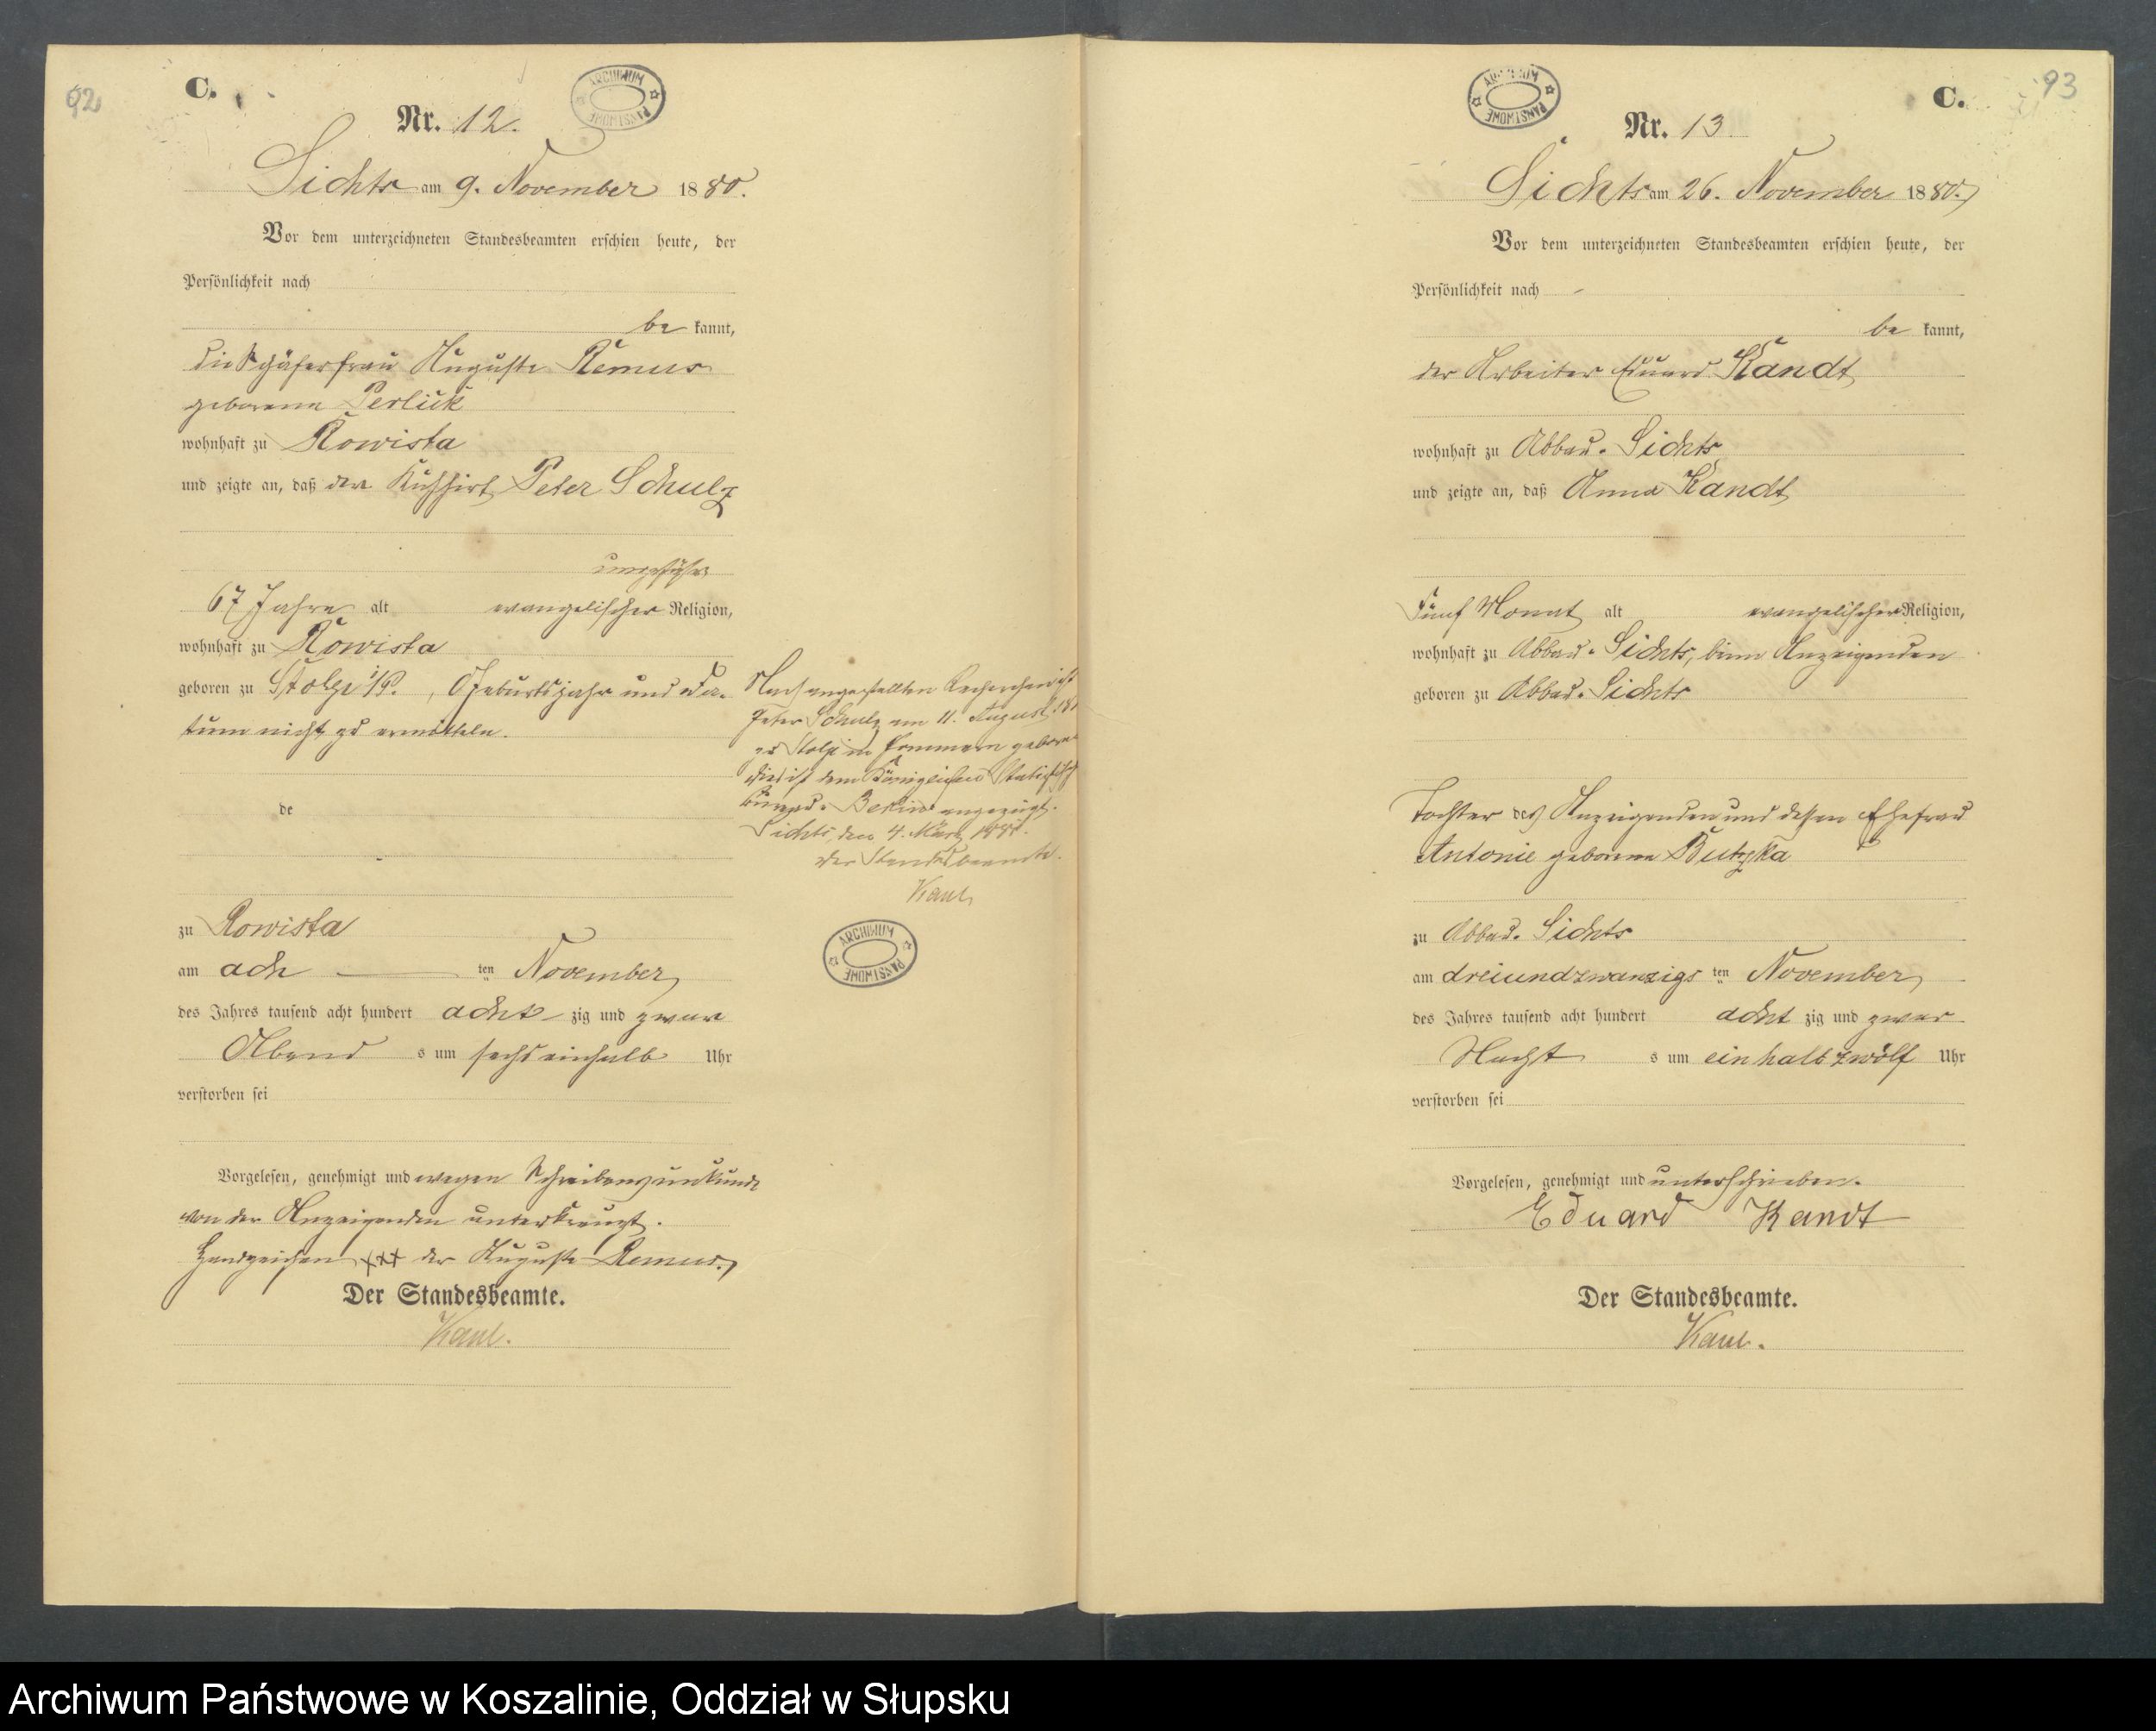 92
C.
ARCHIWUM PAŃSTWOWE
Nr. 12.
Sichts am 9. November 1880.
Vor dem unterzeichneten Standesbeamten erschien heute, der
Persönlichkeit nach
be kannt,
die Schäferfrau Auguste Remus
geborene Perlick
wohnhaft zu Kowista
und zeigte an, daß der Kuhhirt Peter Schulz
ungefähr
67 Jahre alt evangelischer Religion,
wohnhaft zu Kowista
geboren zu Stolp i/P., Geburtsjahr und Da-
tum nicht zu ermitteln.
de
zu Kowista
am ach ten November
des Jahres tausend acht hundert acht zig und zwar
Abend s um sechseinhalb Uhr
verstorben sei
Vorgelesen, genehmigt und wegen Schreibensunkunde
von der Anzeigenden unterkreuzt.
Handzeichen xxx der Auguste Remus.
Der Standesbeamte.
Kaul.
Nach angestellten Recherchen ist
Peter Schulz am 11. August
zu Stolp in Pommern geboren
dies ist dem Königlichen
Bureau Berlin angezeigt.
Sichts, den 4. März 1881.
Der Standesbeamte.
Kaul
ARCHIWUM PAŃSTWOWE
93
C.
ARCHIWUM PAŃSTWOWE
Nr. 13
Sichts am 26. November 1880.
Vor dem unterzeichneten Standesbeamten erschien heute, der
Persönlichkeit nach -
be kannt,
der Arbeiter Eduard Kandt
wohnhaft zu Abbau-Sichts
und zeigte an, daß Anna Kandt
Fünf Monat alt evangelischer Religion,
wohnhaft zu Abbau-Sichts, beim Anzeigenden
geboren zu Abbau-Sichts
Tochter des Anzeigenden und dessen Ehefrau
Antonie geborene Butzka
zu Abbau-Sichts
am dreiundzwanzigs ten November
des Jahres tausend acht hundert acht zig und zwar
Nacht s um einhalb zwölf Uhr
verstorben sei
Vorgelesen, genehmigt und unterschrieben.
Eduard Kandt
Der Standesbeamte.
Kaul.
Archiwum Państwowe w Koszalinie, Oddział w Słupsku